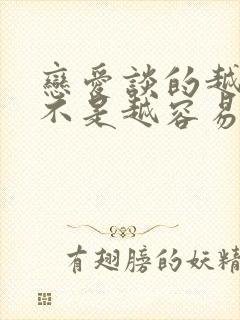 戀愛談的越
不是越容易
有翅膀的妖精